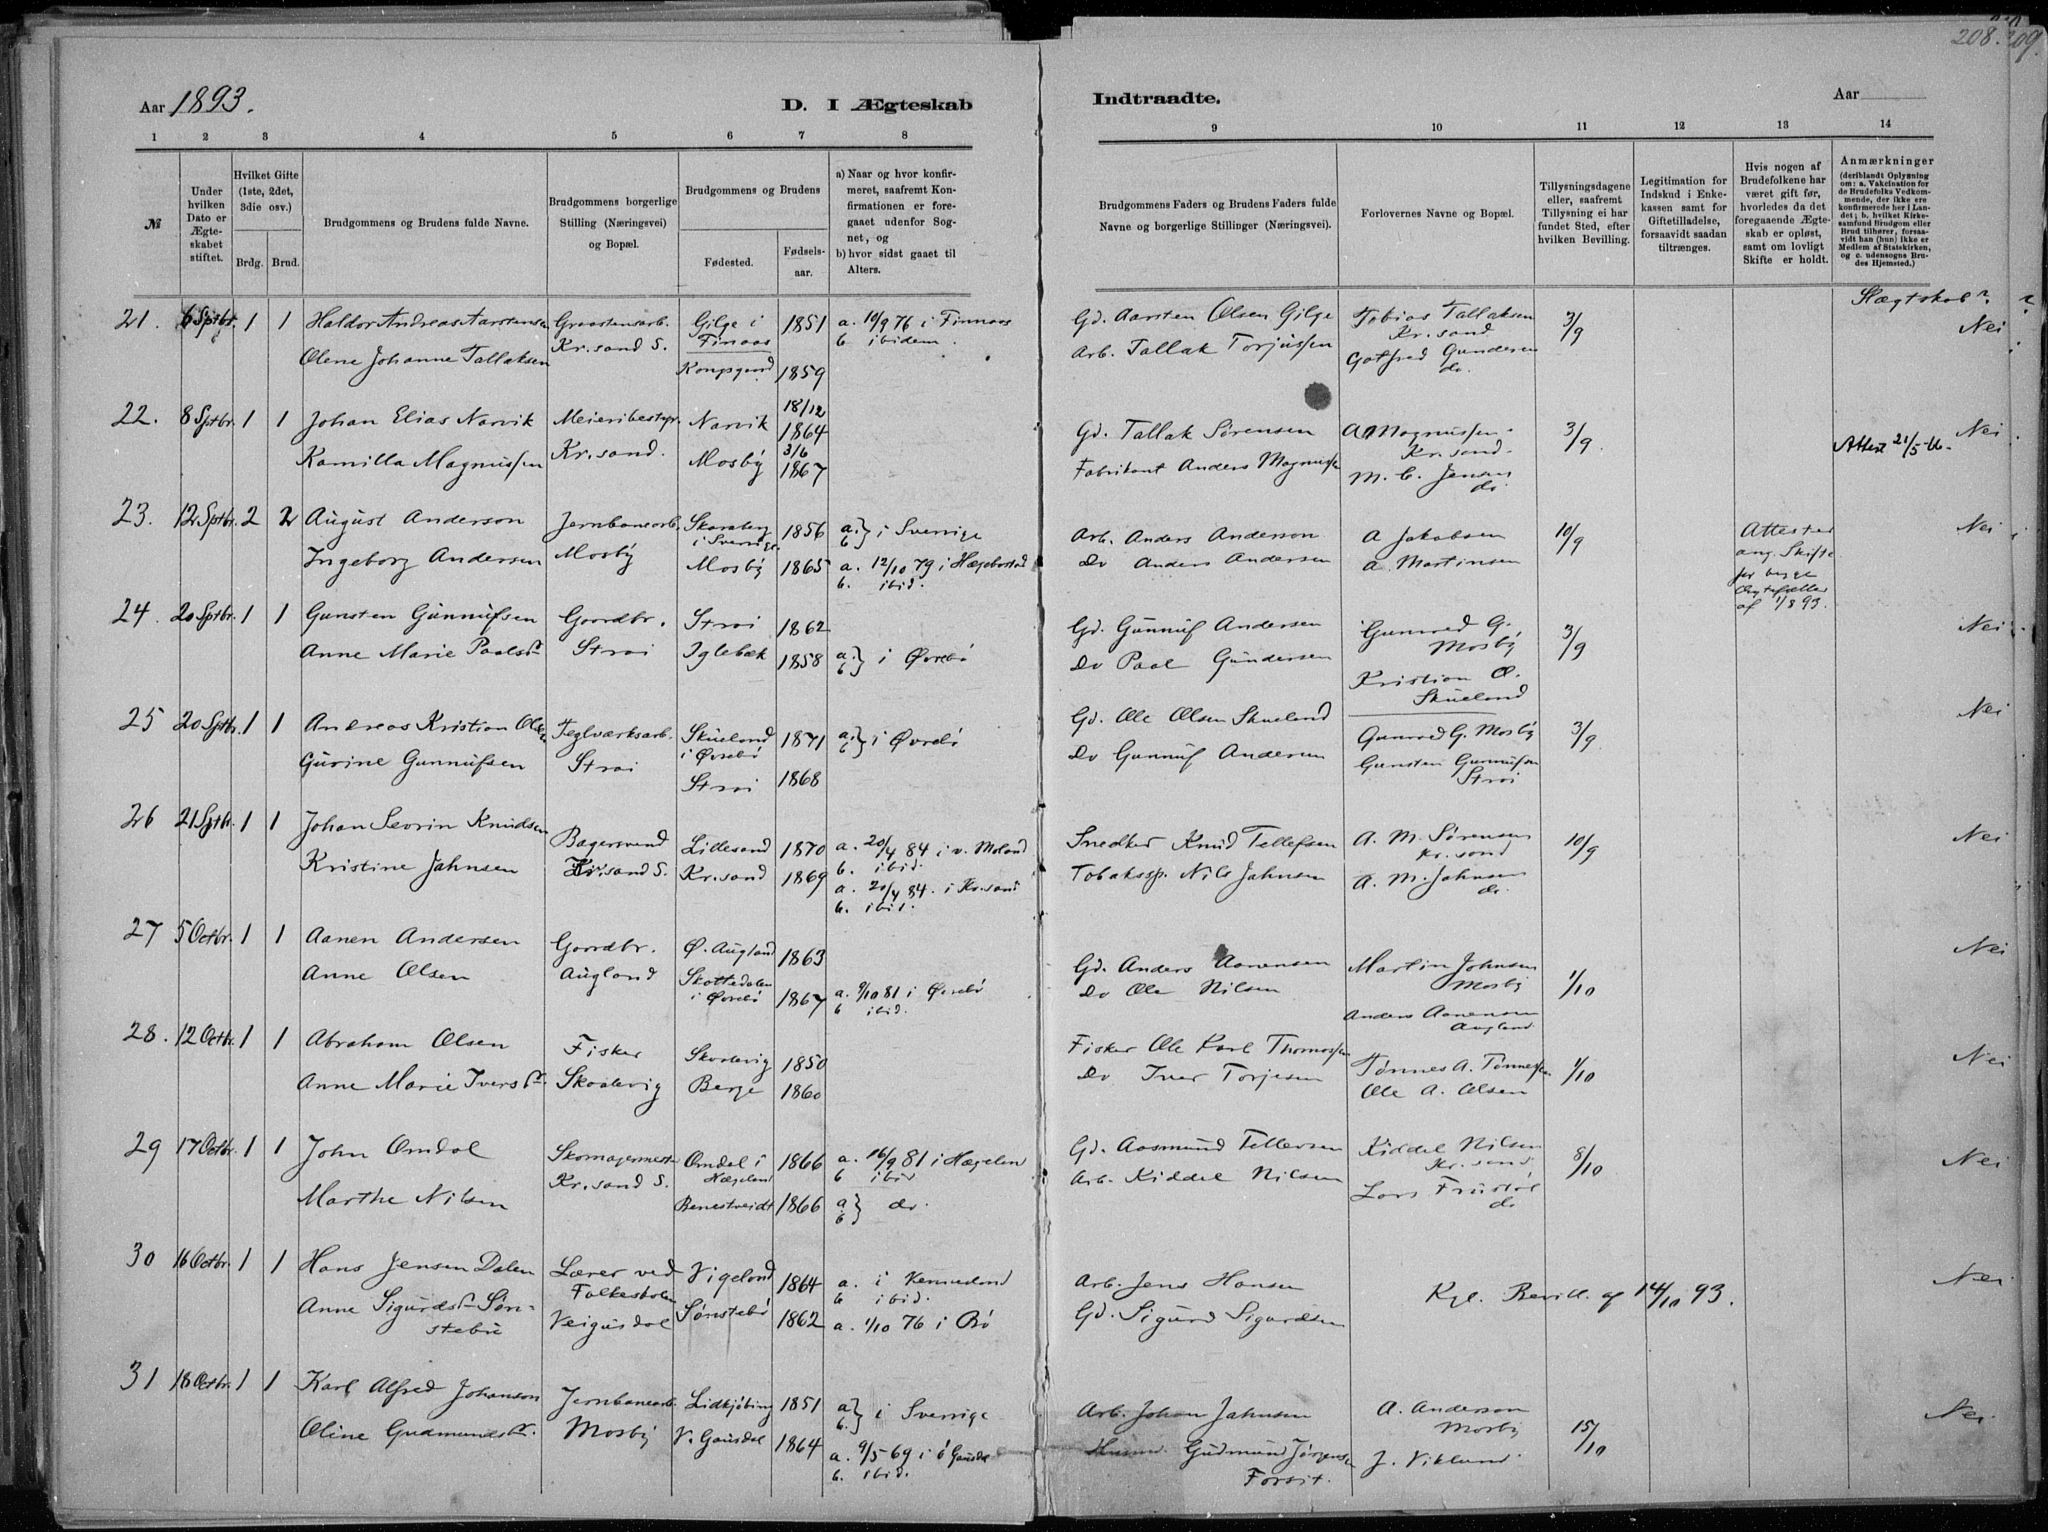 208. 209.
Aar 1893.
D. I Ægteskab
Indtraadte.
Aar
1 2 3 4 5 6 7 8
9 10 11 12 13 14
№
Under
hvilken
Dato er
Ægte-
skabet
stiftet.
Hvilket Gifte
(1ste, 2det,
3die osv.)
Brdg. Brud.
Brudgommens og Brudens fulde Navne.
Brudgommens borgerlige
Stilling (Næringsvei)
og Bopæl.
Brudgommens og Brudens
Fødested.
Fødsels-
aar.
a) Naar og hvor konfir-
meret, saafremt Kon-
firmationen er fore-
gaaet udenfor Sog-
net, og
b) hvor sidst gaaet til
Alters.
Brudgommens Faders og Brudens Faders fulde
Navne og borgerlige Stillinger (Næringsvei).
Forlovernes Navne og Bopæl.
Tillysningsdagene
eller, saafremt
Tillysning ei har
fundet Sted, efter
hvilken Bevilling.
Legitimation for
Indskud i Enke-
kassen samt for
Giftetilladelse,
forsaavidt saadan
tiltrænges.
Hvis nogen af
Brudefolkene har
været gift før,
hvorledes da det
foregaaende Ægte-
skab er opløst,
samt om lovligt
Skifte er holdt.
Anmærkninger
(deriblandt Oplysning
om: a. Vakcination for
de Brudefolks Vedkom-
mende, der ikke ere
konfirmerede her i Lan-
det; b. hvilket Kirke-
samfund Brudgom eller
Brud tilhører, forsaa-
vidt han (hun) ikke er
Medlem af Statskirken,
og c. udensogns Bru-
des Hjemsted.)
Slægtskab?
21. 6 Sptbr. 1 1 Haldor Andreas Aarstensen Graastensarb. Gilge i 1851 a. 10/9 76 i Finnaas Gd. Aarsten Olsen Gilge Tobias Tallaksen 3/9 Nei
Kr.sand S. Finaas b. ibidem. Kr.sand
Olene Johanne Tallaksen Kongsgaard 1859 Arb. Tallak Torjussen Gotfred Gundersen
do.
22. 8 Sptbr. 1 1 Johan Elias Narvik Meieribestyr. Narvik 18/12 1864 Gd. Tallak Sørensen A Magnussen 3/9. Nei
Kr.sand.
Kamilla Magnussen Kr.sand. Mosby 3/6 1867 Fabrikant Anders Magnussen M. C. Jensen Attest 21/5
do
23. 12 Sptbr. 2 2 August Anderson Jernbanearb. Skaraborg 1856 a. b } i Sverrige Arb. Anders Anderson A Jakobsen 10/9 Attester Nei
i Sverrige ang. Skifte
Ingeborg Andersen Mosby Mosby 1865 a. 12/10 79 i Hægebostad Do Anders Andersen A. Martinsen for begge
b. ibid. Ægtefæller
af 1/8 93.
24. 20 Sptbr. 1 1 Gunsten Gunnufsen Gaardbr. Strai 1862 Gd. Gunnuf Andersen Gunvald G. 3/9 Nei
Mosby
Anne Marie Paalsd. Strai Iglebæk 1858 a. b } i Øvrebø Do Paal Gundersen Kristian O.
Skueland
25 20 Sptbr. 1 1 Andreas Kristian Olsen Teglværksarb. Skueland 1871 a. b } i Øvrebø Gd. Ole Olsen Skueland Gunvald G. Mosby 3/9. Nei
i Øvrebø
Gurine Gunnufsen Strai Strai 1868 Do Gunnuf Andersen Gunsten Gunnufsen
Strai
26 21 Sptbr. 1 1 Johan Sevrin Knudsen Bagersvend Lillesand 1870 a. 20/4 84 i v. Moland Snedker Knud Tellefsen A. M. Sørensen 10/9 Nei
b. ibid. Kr.sand
Kristine Jahnsen Kr.sand S. Kr.sand 1869 a. 20/4 84. i Kr.sand Tobakssp. Nils Jahnsen A. M. Jahnsen
b. ibid. do.
27 5 Octbr. 1 1 Aanen Andersen Gaardbr. Ø. Augland 1863 Gd. Anders Aanensen Martin Johnsen 1/10 Nei
Mosby
Anne Olsen Augland Skottedalen 1867 a. 9/10 81 i Øvrebø Do Ole Nilsen Anders Aanensen
i Øvrebø b ibid. Augland
28. 12 Octbr. 1 1 Abraham Olsen Fisker Skaalevig 1850 Fisker Ole Karl Thomassen Tønnes A. Tønnessen 1/10 Nei
Anne Marie Iversd. Skaalevig Berge 1860 Do Iver Torjesen Ole A. Olsen
29 17 Octbr. 1 1 John Omdal Skomagermest. Omdal i 1866 a. 16/9 81 i Hægeland Gd. Aasmund Tellefsen Kiddel Nilsen 8/10 Nei
Kr.sand S. Hægeland b ibid Kr.sand
Marthe Nilsen Benestveidt 1866 a b } do. Arb. Kiddel Nilsen Lars Frustøl
do
30 16 Octbr. 1 1 Hans Jensen Dalen Lærer ved Vigeland 1864 a. i Arb. Jens Hansen Kgl. Bevill. af 14/10 93. Nei
Folkeskolen b ibid.
Anne Sigurdsd. Søn- Veigusdal Sønstebø 1862 a. 1/10 76 i Bø Gd. Sigurd Sigurdsen
stebø
31 18 Octbr. 1 1 Karl Alfred Johanson Jernbanearb. Lidkjøbing 1851 a b. } i Sverrige Arb. Johan Jahnsen A. Anderson 15/10 Nei
Mosby
Oline Gudmundsd. Mosby V. Gausdal 1864 a. 9/5 69 i ø Gausdal Gudmund Jørgensen J. Viklund
b. ibid.